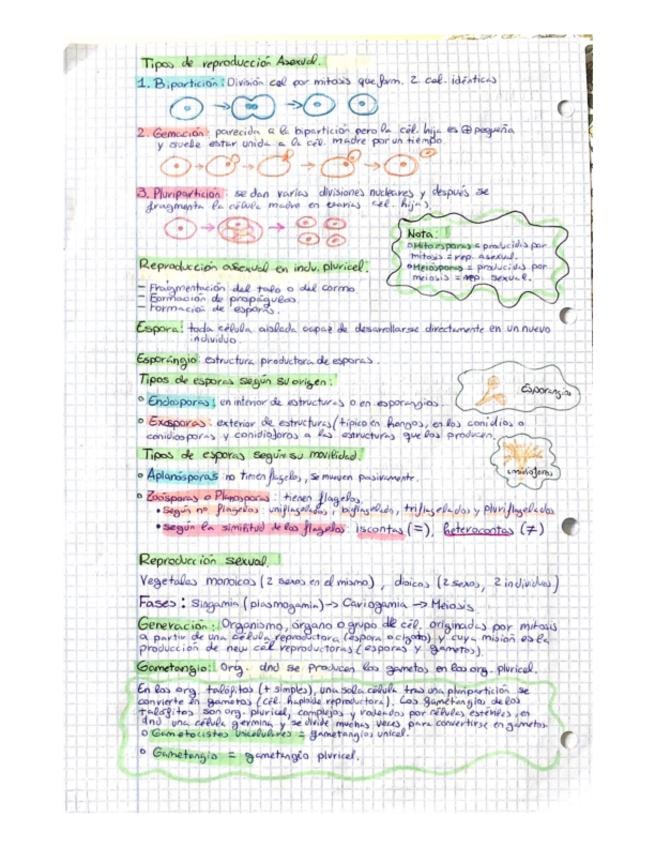 Tipos de reproducción Asexual.
1. Bipartición: División cel por mitosis que form. 2 cel. idénticas
2. Gemación: parecida a la bipartición pero la cél. hija es ⊕ pequeña
y suele estar unida a la cél. madre por un tiempo
3. Pluripartición: se dan varias divisiones nucleares y después se
fragmenta la célula madre en varias cel. hijas.
Nota:
Mitosporas = producidas por
mitosis = rep. asexual.
Meiosporas = producidas por
meiosis = rep. sexual.
Reproducción asexual en indv. pluricel.
- Fragmentación del talo o del cormo.
- Formación de propágulos.
- Formación de esporas.
Espora: toda célula aislada capaz de desarrollarse directamente en un nuevo
individuo.
Esporángio: estructura productora de esporas.
Tipos de esporas según su origen:
Endosporas: en interior de estructuras o en esporangios.
Esporangios
Exosporas: exterior de estructuras (típico en hongos, en los conidios o
conidiosporas y conidióforos a las estructuras que los producen.
conidióforos
Tipos de esporas según su movilidad.
Aplanósporas: no tienen flagelos, se mueven pasivamente.
Zoósporas o Planosporas: tienen flagelos.
• según nº flagelos: uniflagelados, biflagelado, triflagelados y pluriflagelados
• según la similitud de los flagelos: iscontas (=), heterocontas (≠)
Reproducción sexual.
Vegetales monoicos (2 sexos en el mismo), dioicos (2 sexos, 2 individuos)
Fases: Singamia (plasmogamia) → Cariogamia → Meiosis
Generación: Organismo, órgano o grupo de cél. originadas por mitosis
a partir de una célula reproductora (espora o cigoto) y cuya misión es la
producción de new cél reproductoras (esporas y gametos).
Gametangio: Órg. dnd se producen los gametos en los org. pluricel.
En los org. talófitos (+ simples), una sola célula tras una pluripartición se
convierte en gametos (cél. haploide reproductora). Los gametangios de los
talófitos son org. pluricel, complejos y rodeados por células estériles, en
dnd una célula germina y se divide muchas veces para convertirse en gametos.
Gametocistos unicelulares = gametangios unicel.
Gametangio = gametangio pluricel.